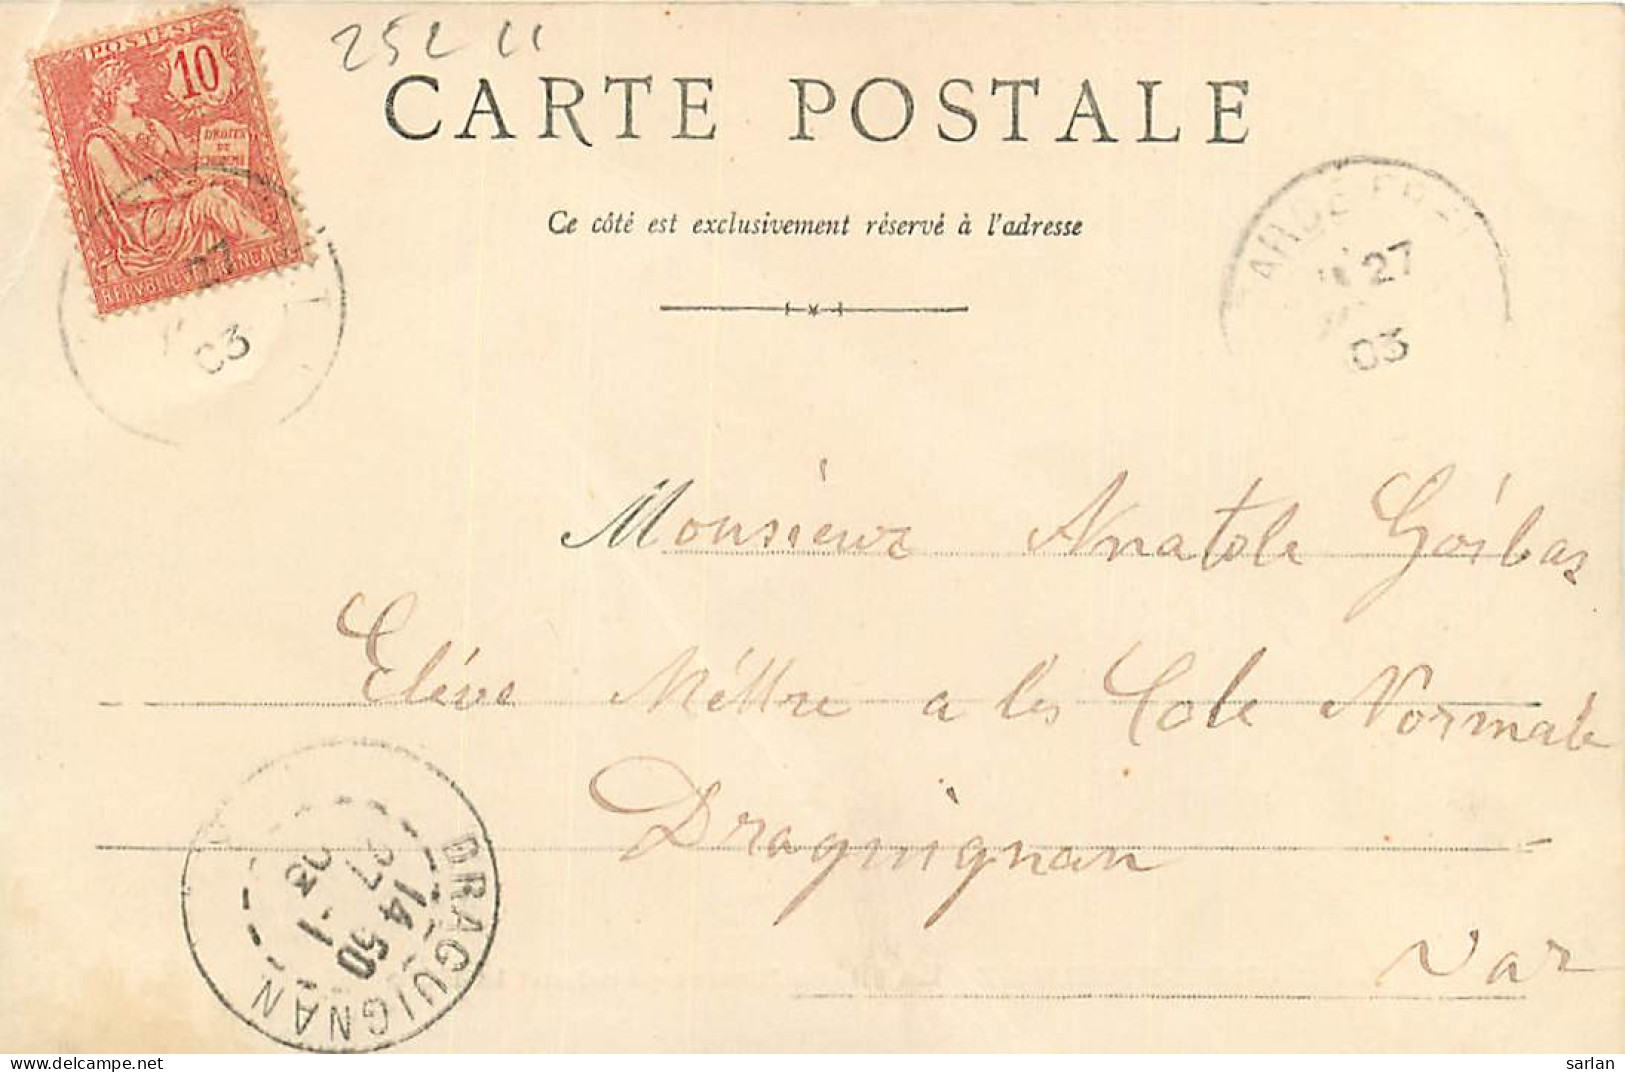 25211
POSTES
10
DROITS
DE
L'HOMME
REPVBLIQVE FRANÇAISE
CARTE POSTALE
Ce côté est exclusivement réservé à l'adresse
27
03
27
03
Monsieur Anatole Goibas
Elève Mêttre a les Cole Normale
Draguignan
Var
DRAGUIGNAN
14 50
27 -1
03
sarlan